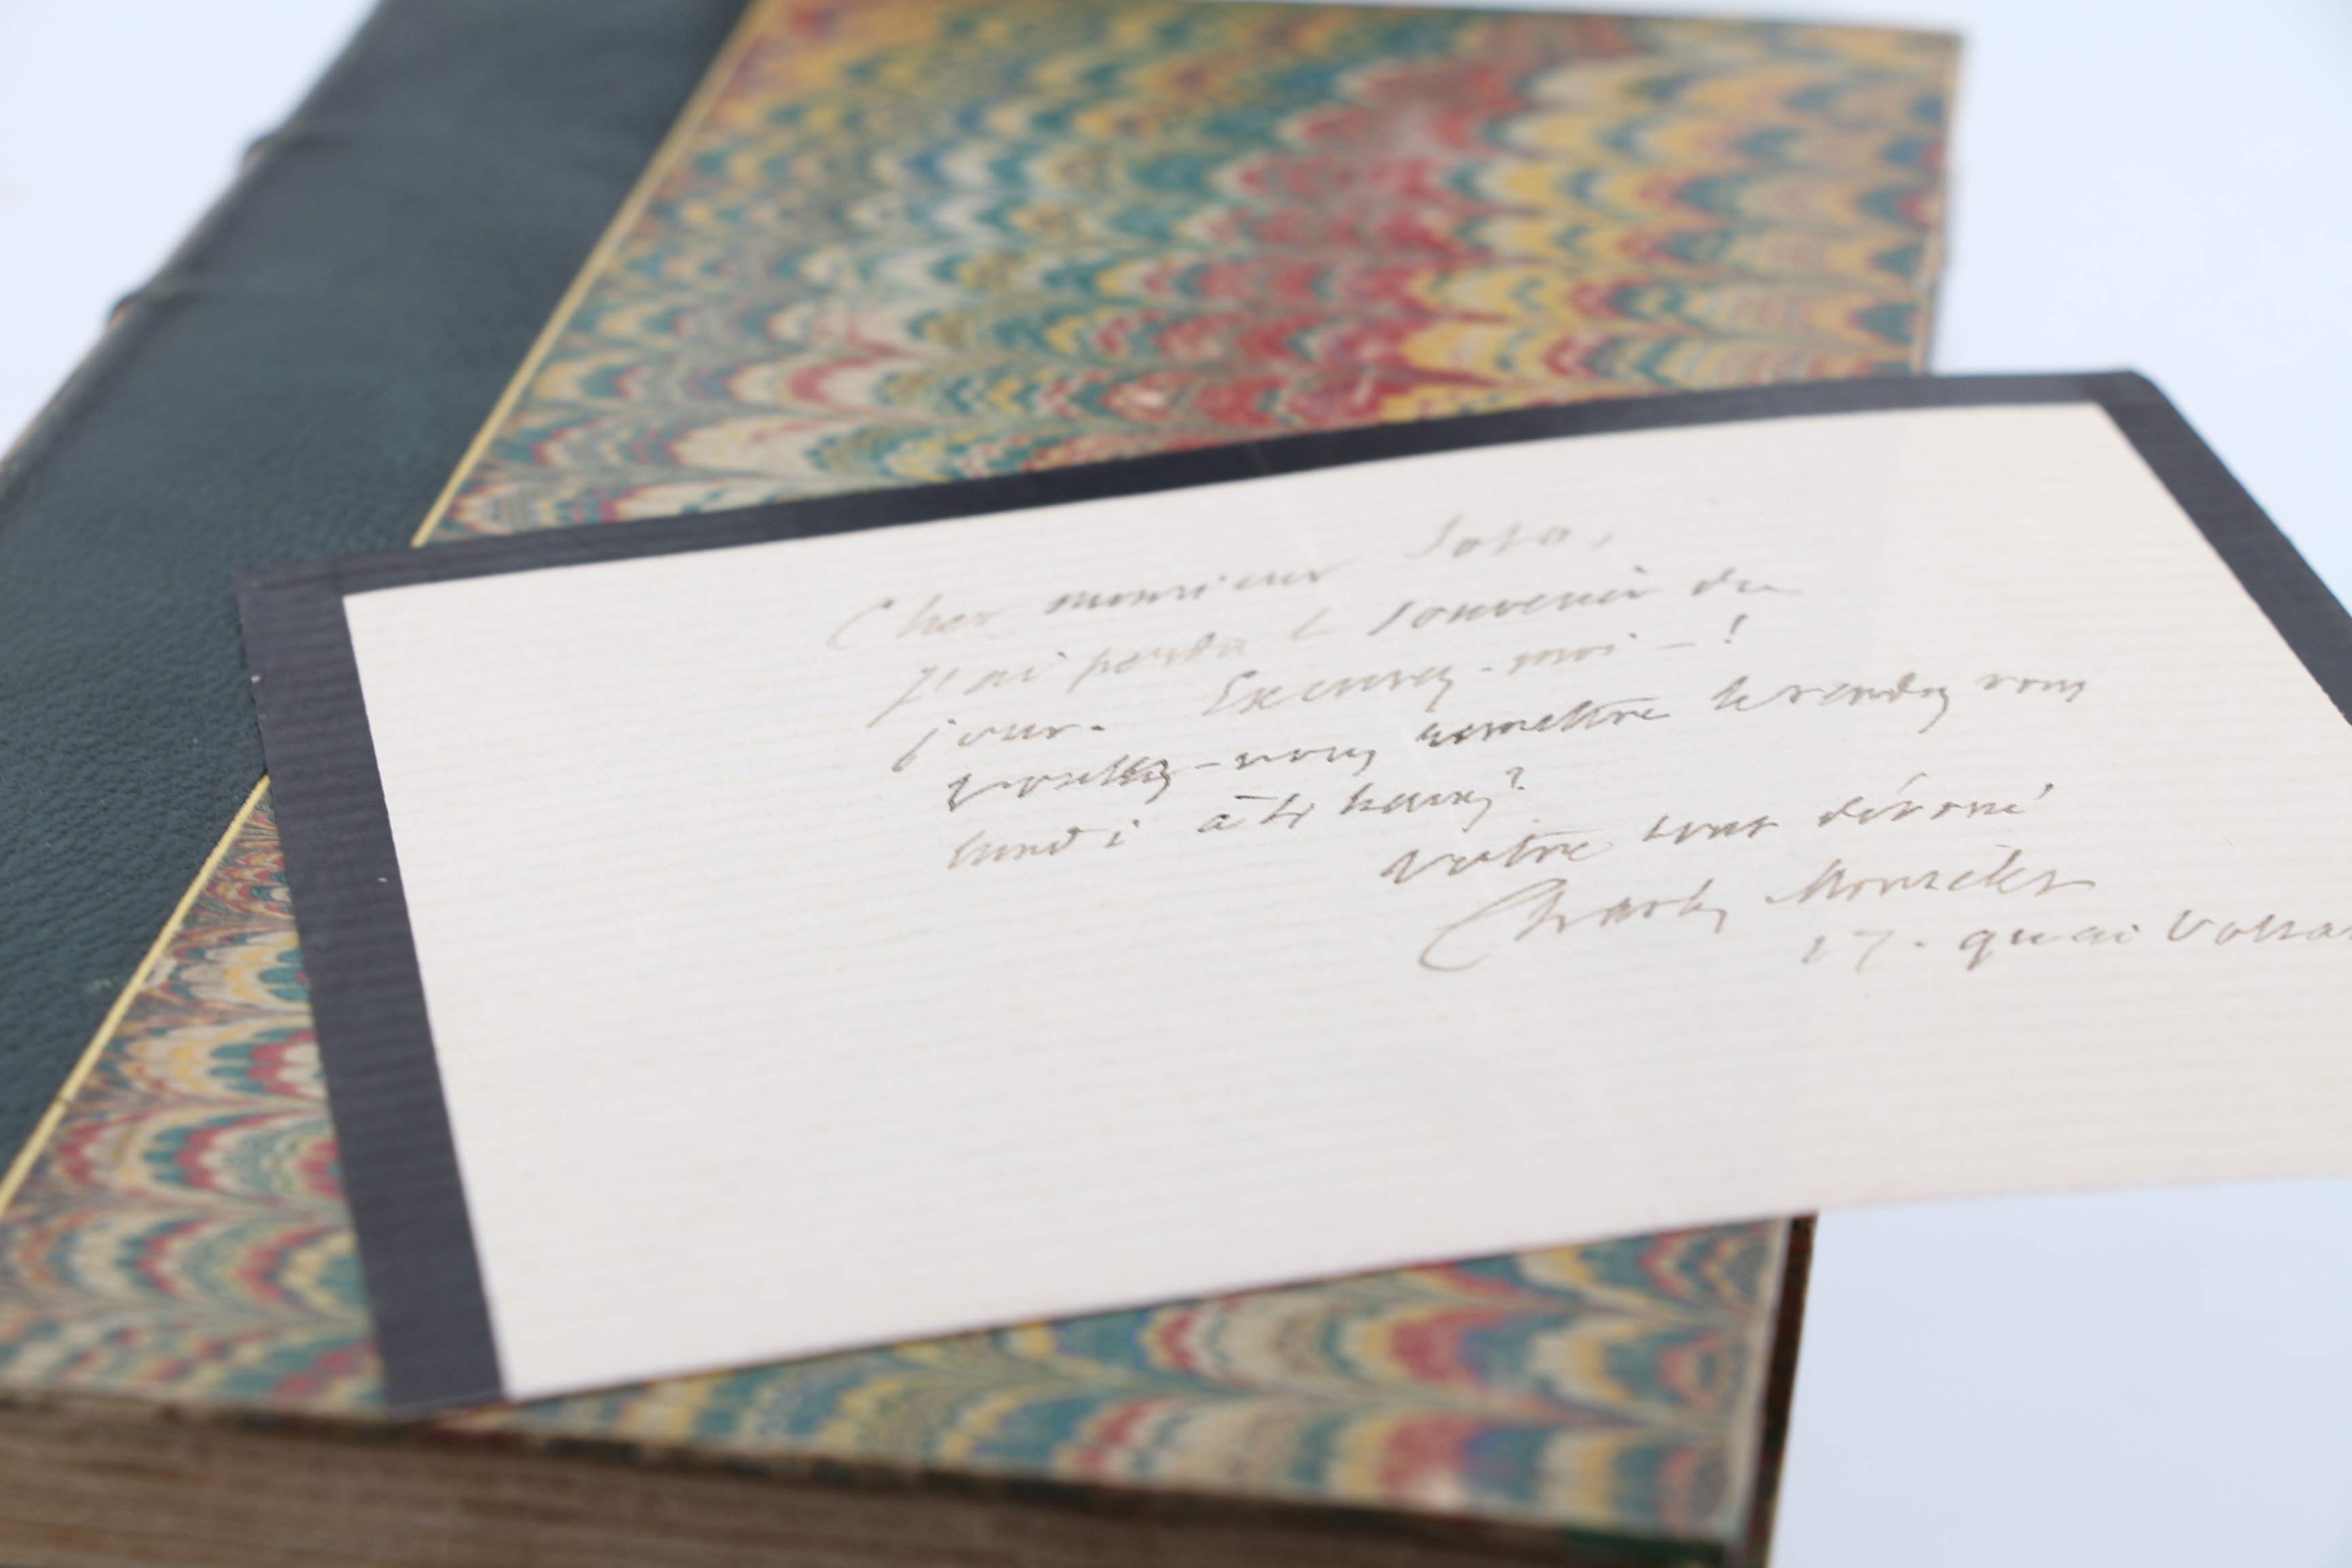 Cher monsieur Soto,
j'ai perdu le souvenir du
jour. Excusez-moi – !
voulez-vous remettre le rendez vous
lundi à heures?
votre tout dévoué
Charles Monselet
17. quai Volta